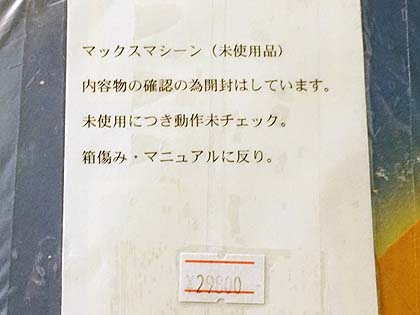 マックスマシーン（未使用品）
内容物の確認の為開封はしています。
未使用につき動作未チェック。
箱傷み・マニュアルに反り。
¥29800